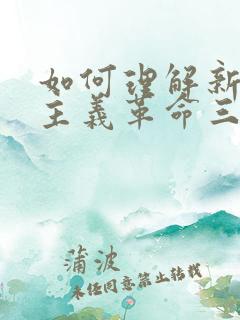 如何理解新
主義革命三
蒲波
未经同意禁止转载